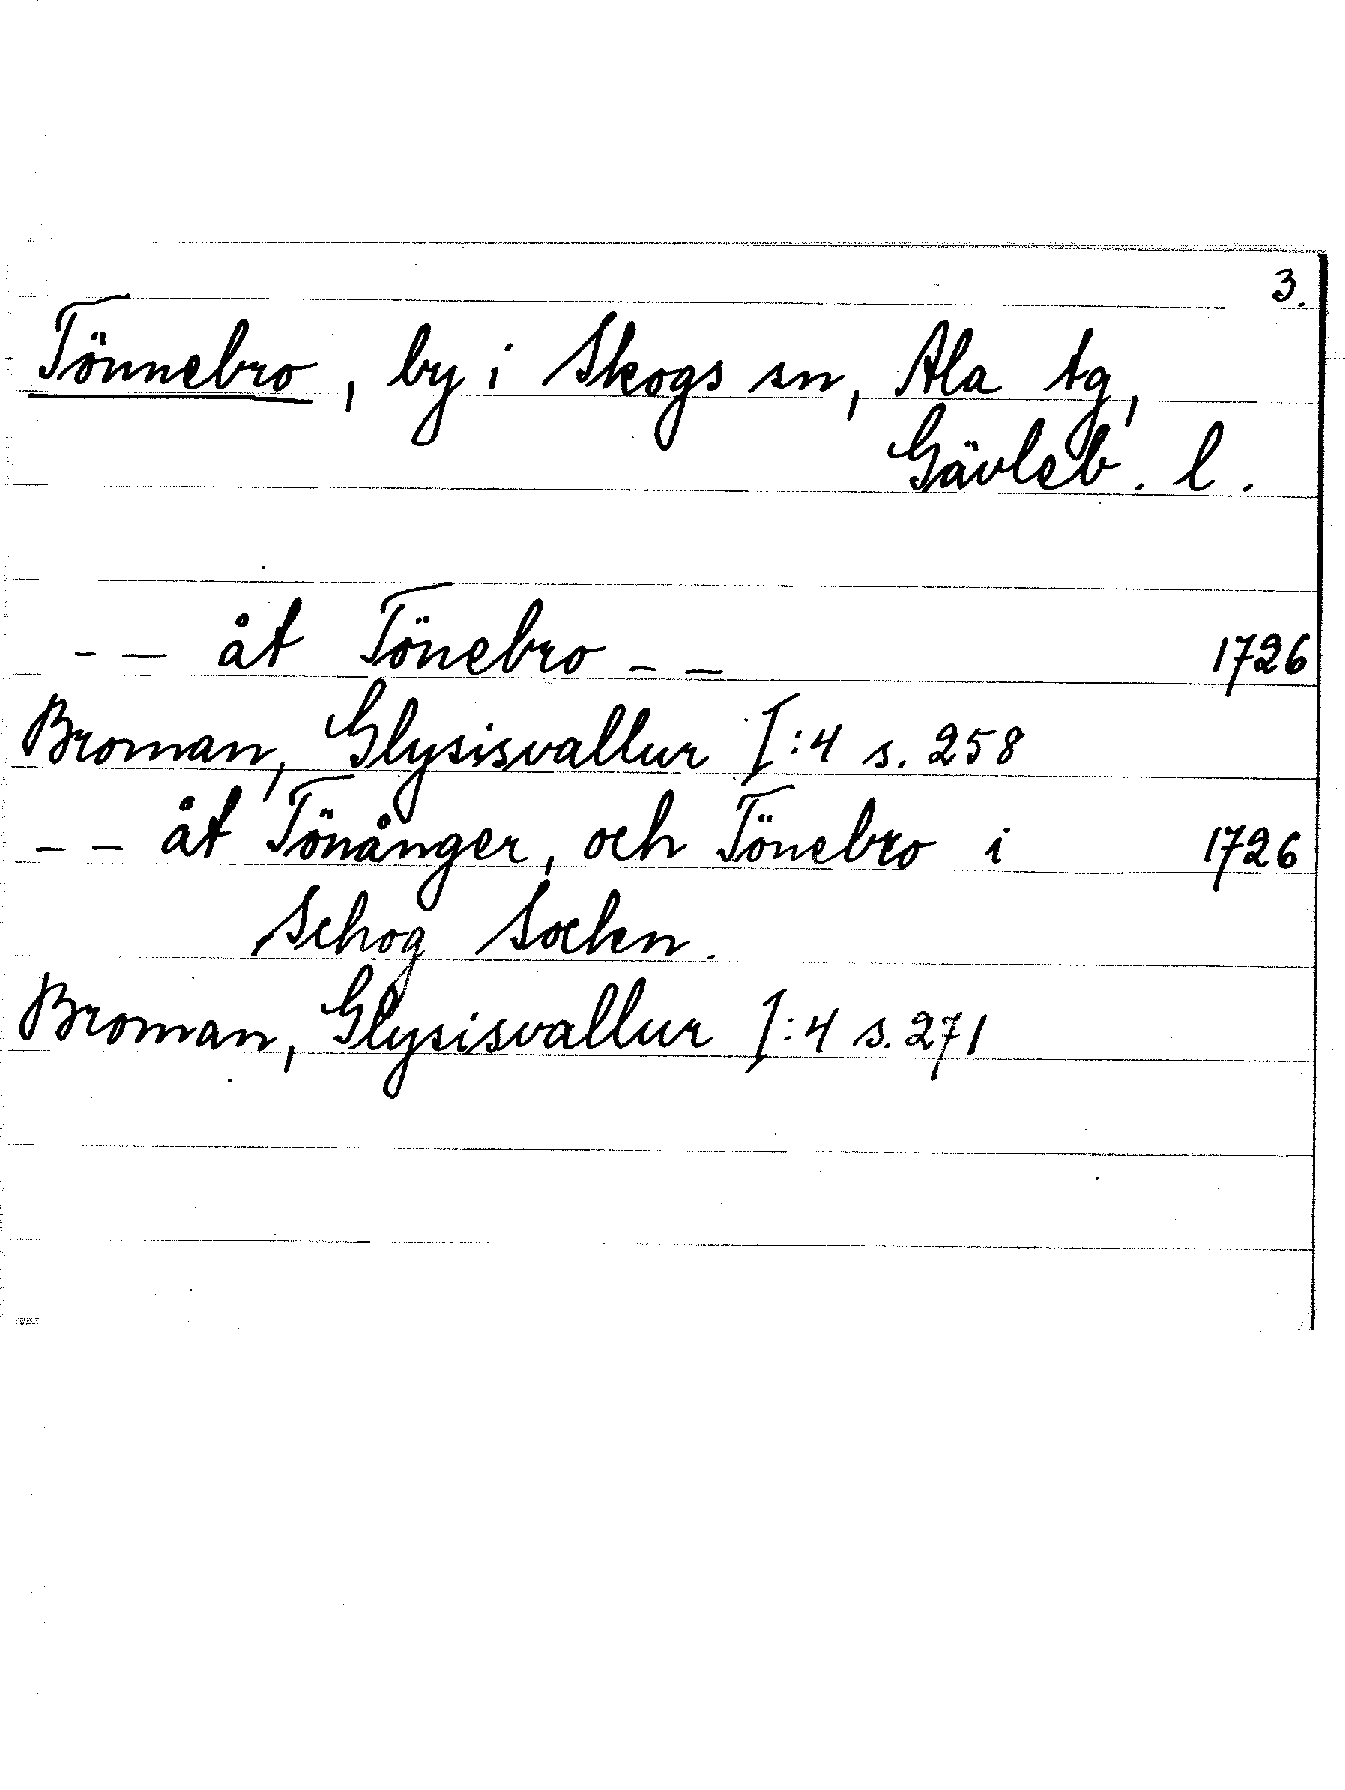 3.
Tönnebro, by i Skogs sn, Ala tg,
Gävleb. l.
-- åt Tönebro -- 1726
Broman, Glysisvallur I:4 s. 258
-- åt Tönånger, och Tönebro i 1726
Schog Sockn.
Broman, Glysisvallur I:4 s. 271